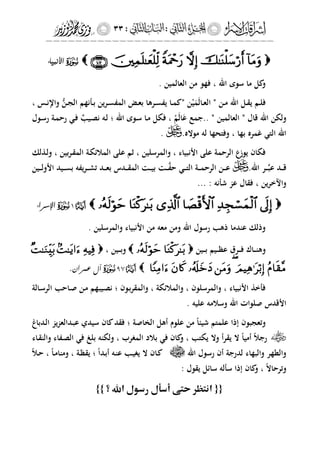 ﴿ وَمَآ أَرْسَلْنَٰكَ إِلَّا رَحْمَةً لِّلْعَٰلَمِينَ ١٠٧ ﴾ الأنبياء
وكل ما سوى الله ، فهو من العالمين .
فلم يقل الله من عالم "العالمين" كما يفسرها بعض المفسرين بأنهم الجن والإنس ،
ولكن الله قال " العالمين " ..جمع عَالَمْ ، فكل ما سوى الله ؛ له نصيب في رحمة رسول
الله التي غمره بها ، وفتحها له مولاه .
فكان يوزع الرحمة على الأنبياء ، والمرسلين ، ثم على الملائكة المقربين ، ولذلك
قد عبَّر الله عن الرحمة التي حفَّت بيت المقدس بعد تشريفه بسيد الأولين
والآخرين ، فقال عز شأنه : ...
﴿ إِلَى ٱلْمَسْجِدِ ٱلْأَقْصَا ٱلَّذِى بَٰرَكْنَا حَوْلَهُۥ ﴾ ١ الإسراء
وذلك عندما ذهب رسول الله ومن معه من الأنبياء والمرسلين .
وهناك فرق عظيم بين ﴿ بَٰرَكْنَا حَوْلَهُۥ ﴾ وبين ، ﴿ فِيهِ ءَايَٰتٌۢ بَيِّنَٰتٌ
مَّقَامُ إِبْرَٰهِيمَ ۖ وَمَن دَخَلَهُۥ كَانَ ءَامِنًا ﴾ ٩٧ آل عمران.
فأخذ الأنبياء ، والمرسلون ، والملائكة ، والمقربون ؛ نصيبهم من صاحب الرسالة
الأقدس صلوات الله وسلامه عليه .
وتعجبون إذا علمتم شيئاً من علوم أهل الخاصة ؛ فقد كان سيدي عبدالعزيز الدباغ
رجلاً أمياً لا يقرأ ولا يكتب ، وكان في بلاد المغرب ، ولكنه بلغ في الصفاء والنقاء
والطهر والبهاء لدرجة أن رسول الله كان لا يغيب عنه أبداً ؛ يقظة ، ومناماً ، حلاً
وترحالاً ، وكان إذا سأله سائل يقول :
{{ انتظر حتى أسأل رسول الله ؟ }}